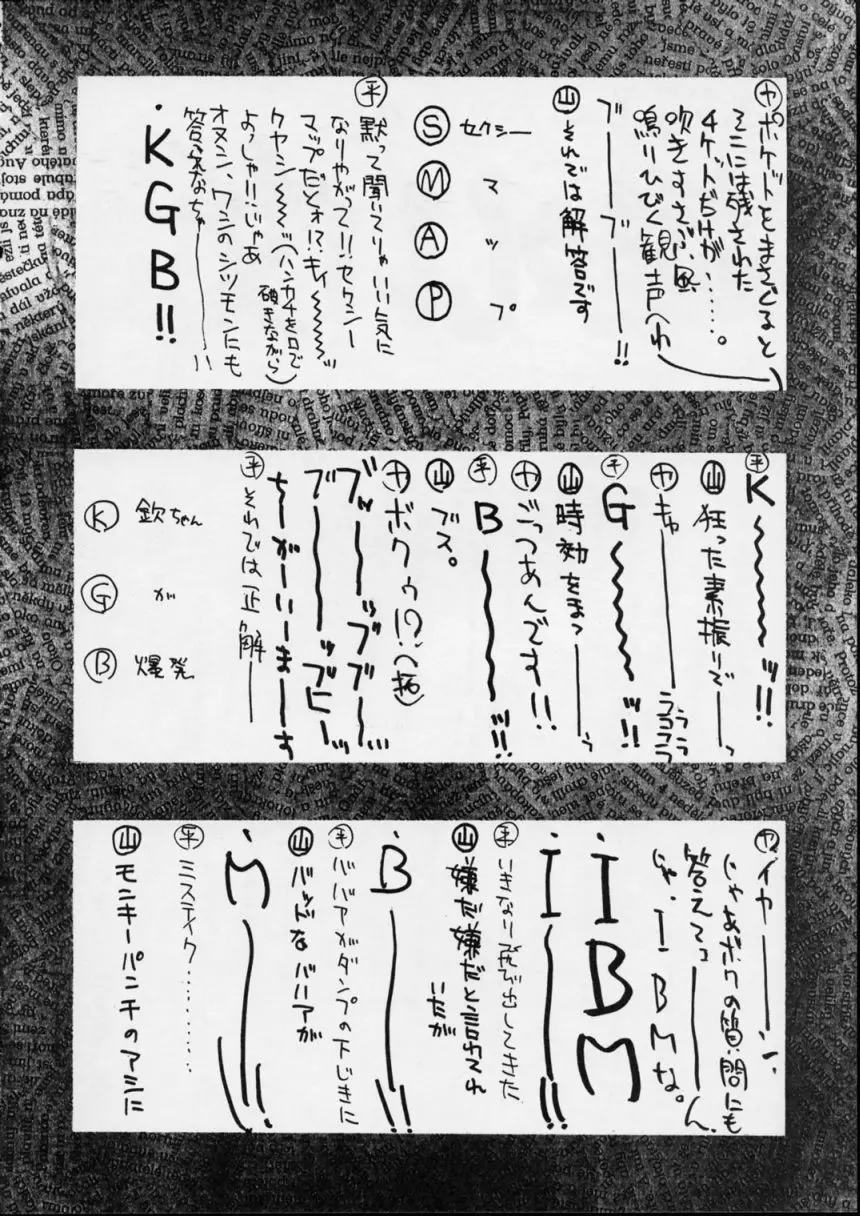 ポケットをまさぐると
そこには残された
4ケットだけが……。
吹きすさぶ風
鳴りひびく観声へわ
ブーーブーー!!
㊤それでは解答です
Ⓢ セクシー
Ⓜ マ
Ⓐ ッ
Ⓟ プ
㊥黙って聞いてりゃいい気に
なりやがって!!セクシー
マップだとォ!?キィ〜〜〜ッ
クヤシ〜〜〜ッ(ハンカチを口で
破きながら)
よっしゃ!!じゃあ
オヌシ、ワシのシツモンにも
答えなちゃ――!!
・KGB!!
㊥K〜〜〜ッ!!
㊤狂った素振りで――っ
㋳キャ――ラララララ
㊥G〜〜〜ッ!!
㊤時効をまっ――う
㋳ごっつあんです!!
㊥B〜〜〜ッ!!
㊤ブス。
㋳ボクゥ!?(拓)
ブッ――ッブブ――ッ
ブ――ッブヒ――ッ
ち――が――い――ま――す
㊥それでは正解――
Ⓚ 欽ちゃん
Ⓖ が
Ⓑ 爆発
㋳イヤ――ン。
じゃあボクの質問にも
答えてっ――ん。
じゃ、IBMな。
・IBM
・I――!!
㊥いきなり飛び出してきた
㊤嫌だ嫌だと言われて
いたが
・B――!!
㊥ババアがダンプの下じきに
㊤バッドなババアが
・M――!!
㊥ミステイク…………
㊤モンキーパンチのアシに